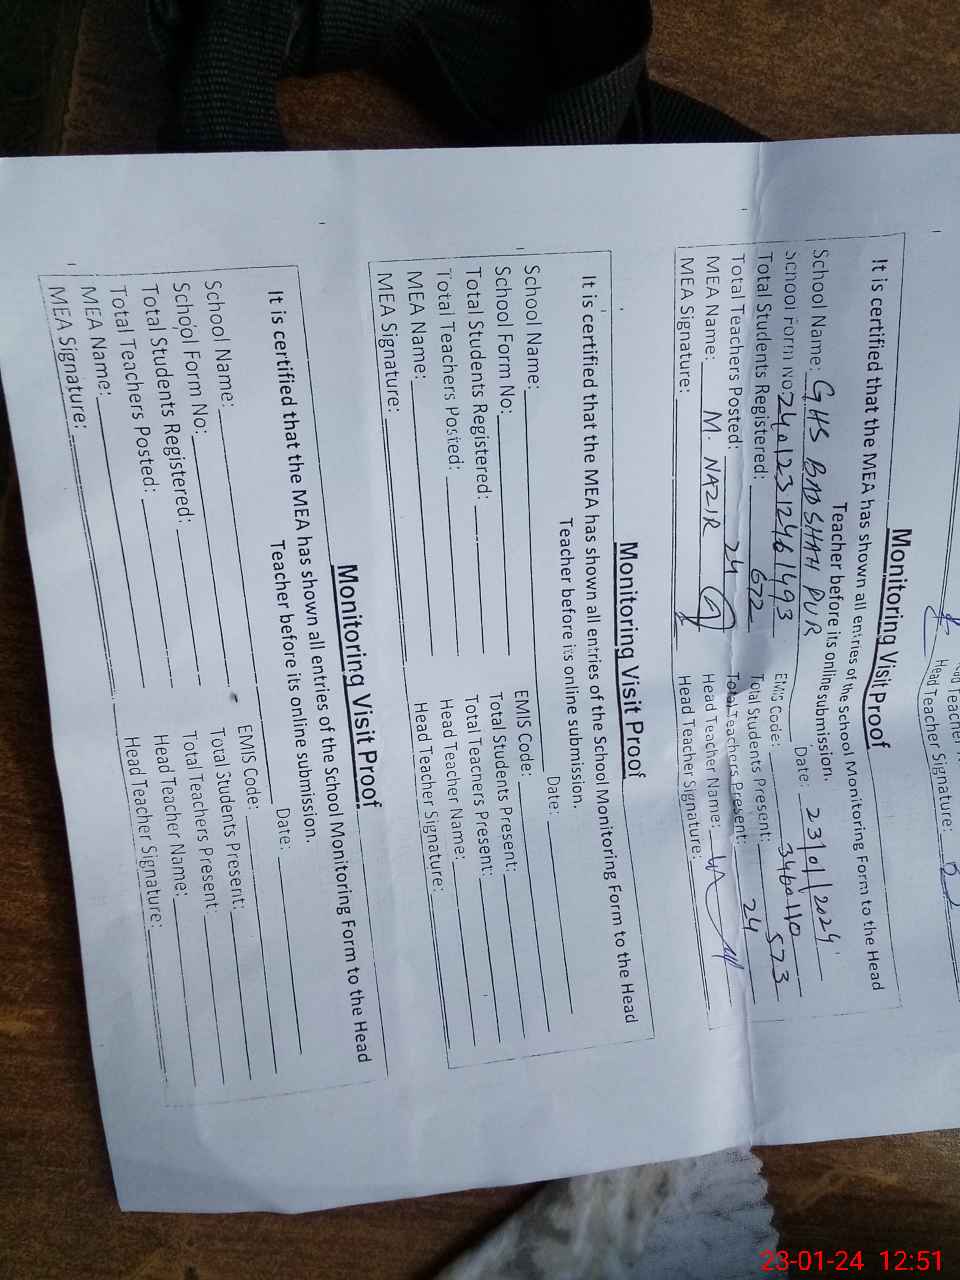 Head Teacher Signature:
Monitoring Visit Proof
It is certified that the MEA has shown all entries of the School Monitoring Form to the Head
Teacher before its online submission.
School Name: GHS BADSHAH PUR Date: 23/01/2024
School Form No: 24012312461493 EMIS Code: 3460110
Total Students Registered: 672 Total Students Present: 573
Total Teachers Posted: 24 Total Teachers Present: 24
MEA Name: M. NAZIR Head Teacher Name:
MEA Signature: Head Teacher Signature:
Monitoring Visit Proof
It is certified that the MEA has shown all entries of the School Monitoring Form to the Head
Teacher before its online submission.
School Name: Date:
School Form No: EMIS Code:
Total Students Registered: Total Students Present:
Total Teachers Posted: Total Teachers Present:
MEA Name: Head Teacher Name:
MEA Signature: Head Teacher Signature:
Monitoring Visit Proof
It is certified that the MEA has shown all entries of the School Monitoring Form to the Head
Teacher before its online submission.
School Name: Date:
School Form No: EMIS Code:
Total Students Registered: Total Students Present:
Total Teachers Posted: Total Teachers Present:
MEA Name: Head Teacher Name:
MEA Signature: Head Teacher Signature:
23-01-24 12:51